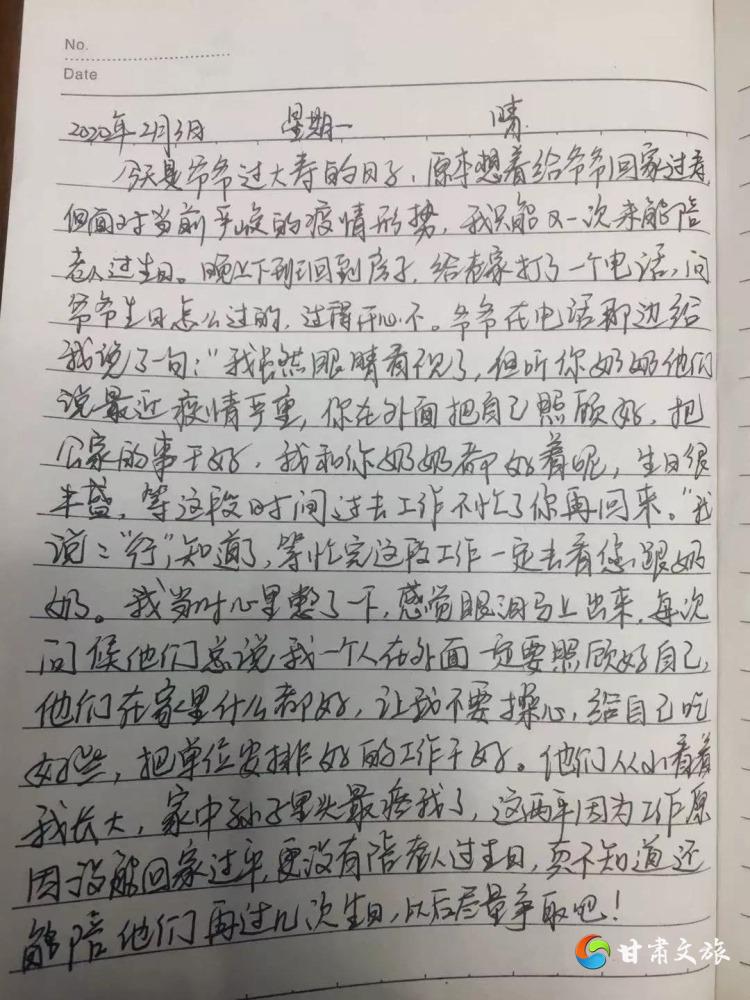 No.
Date
2020年2月3日 星期一 晴
今天是爷爷过大寿的日子，原本想着给爷爷回家过寿
但面对当前严峻的疫情形势，我只能又一次未能陪
老人过生日。晚上下班回到房子，给老家打了一个电话，问
爷爷生日怎么过的，过得开心不。爷爷在电话那边给
我说了一句："我虽然眼睛看不见了，但听你奶奶他们
说最近疫情严重，你在外面把自己照顾好，把
公家的事干好，我和你奶奶都好着呢，生日很
丰盛，等这段时间过去工作不忙了你再回来。"我
说："行"，知道了，等忙完这段工作一定去看您跟奶
奶。我当时心里憋了一下，感觉眼泪马上出来，每次
问候他们总说我一个人在外面一定要照顾好自己，
他们在家里什么都好，让我不要操心，给自己吃
好些，把单位安排好的工作干好。他们从小看着
我长大，家中孙子里头最疼我了，这两年因为工作原
因没能回家过年，更没有陪老人过生日，真不知道还
能陪他们再过几次生日，以后尽量争取吧！
甘肃文旅